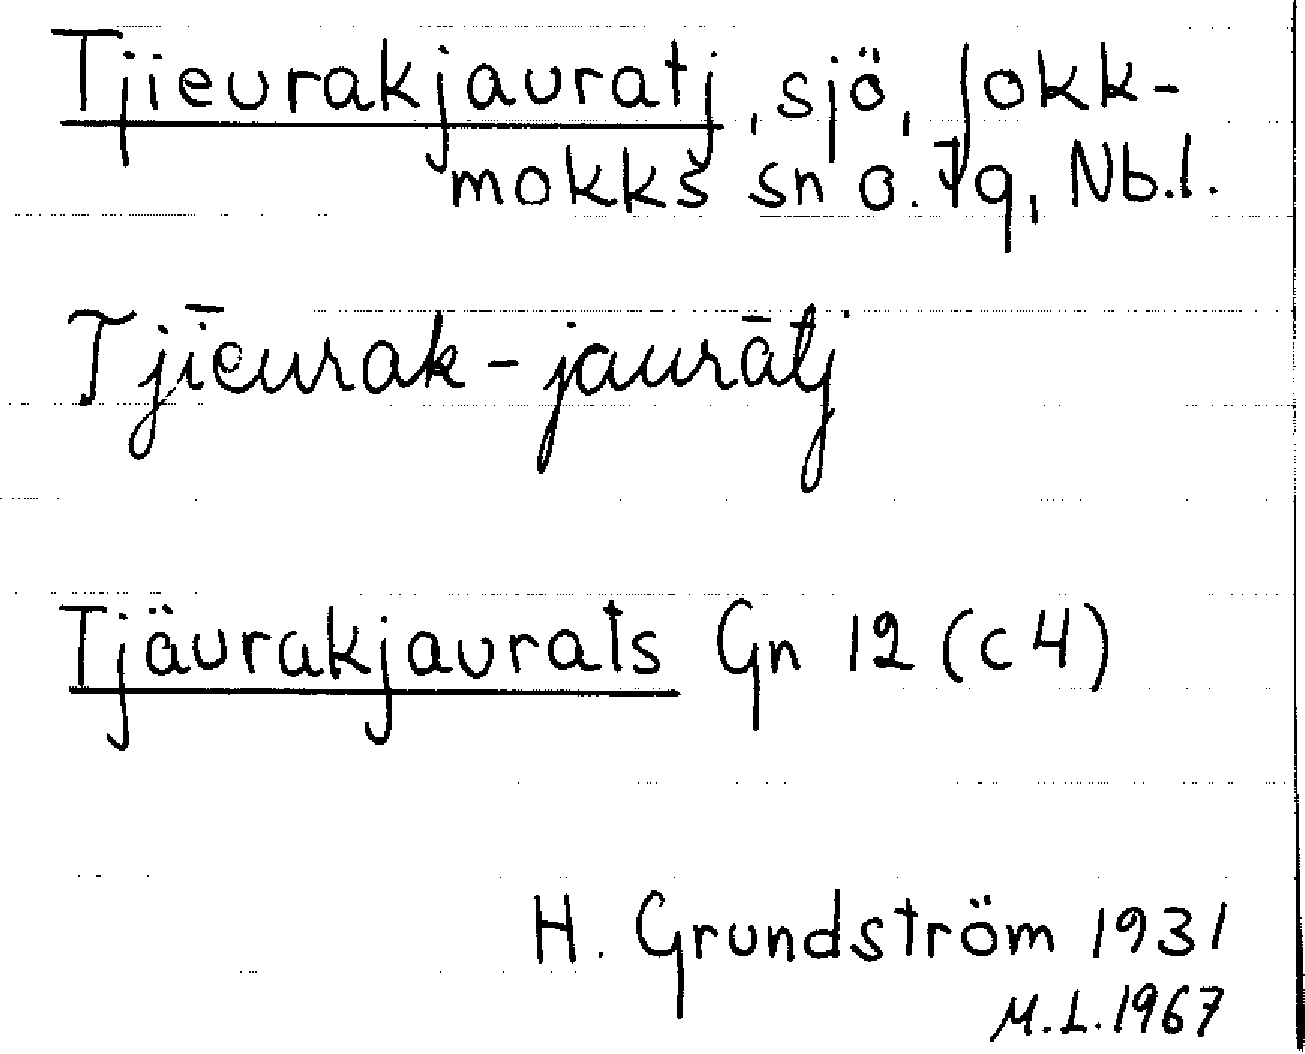 Tjieurakjauratj, sjö, Jokk-
mokks sn o. lg, Nb.l.
Tjīeurak-jaurātj
Tjäurakjaurats Gn 12 (c4)
H. Grundström 1931
M.L.1967